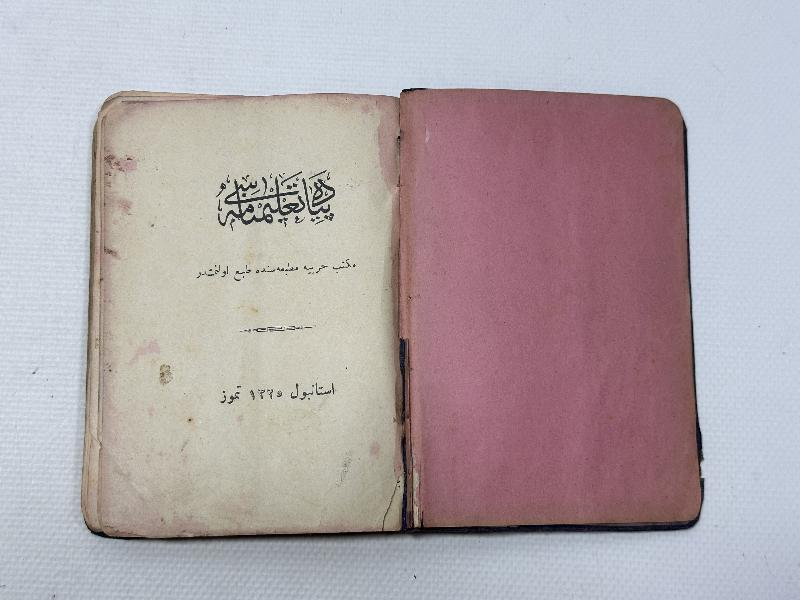 پیاده تعلیمنامه‌سی
مکتب حربیه مطبعه‌سنده طبع اولنمشدر
استانبول ١٣٣٥ تموز